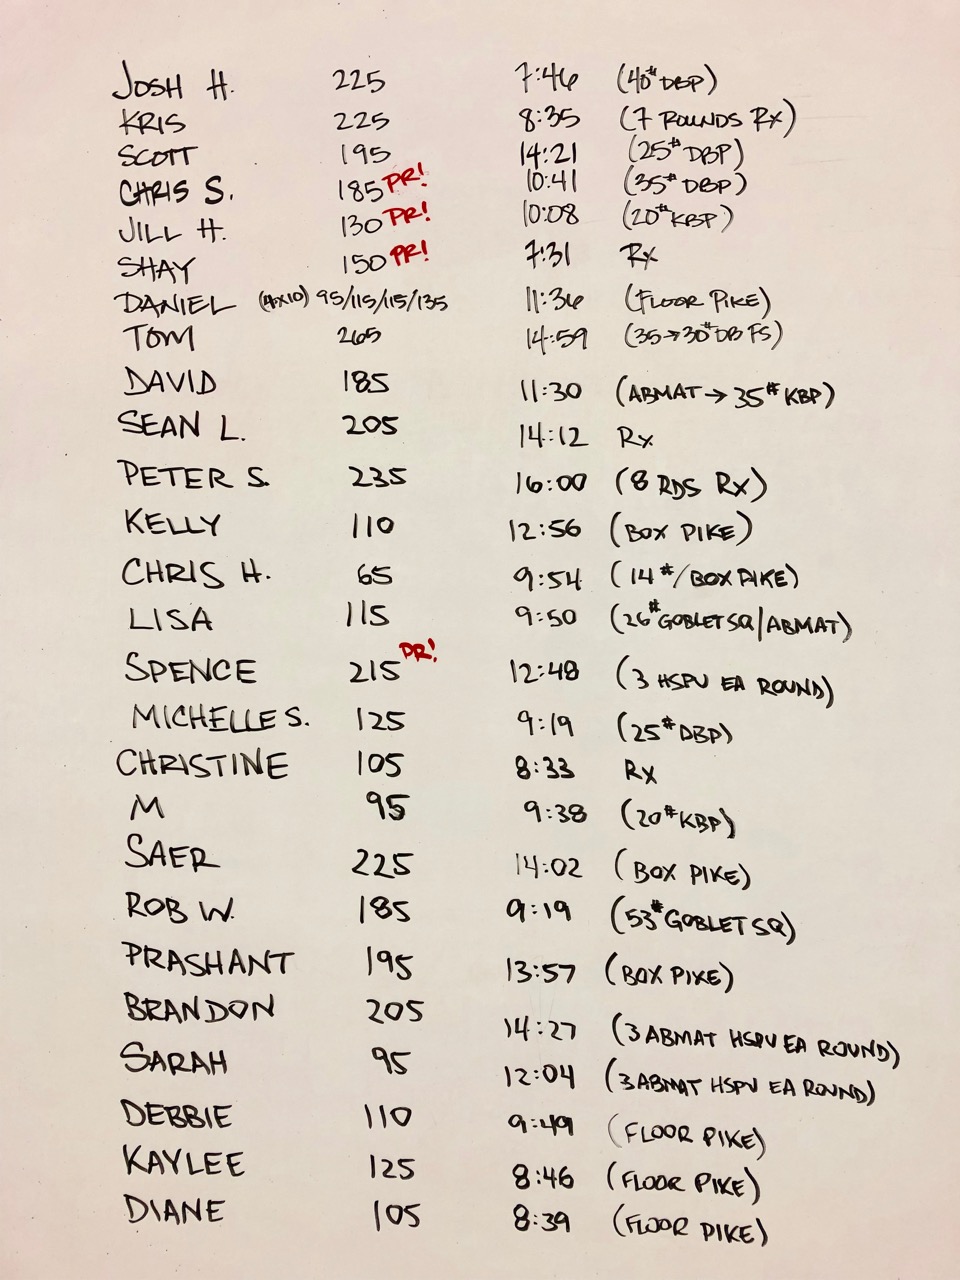 JOSH H. 225 7:46 (40# DBP)
KRIS 225 8:35 (7 ROUNDS RX)
SCOTT 195 14:21 (25# DBP)
CHRIS S. 185 PR! 10:41 (35# DBP)
JILL H. 130 PR! 10:08 (20# KBP)
SHAY 150 PR! 7:31 RX
DANIEL (4x10) 95/115/115/135 11:36 (FLOOR PIKE)
TOM 265 14:59 (35→30# DB FS)
DAVID 185 11:30 (ABMAT → 35# KBP)
SEAN L. 205 14:12 RX
PETER S. 235 16:00 (8 RDS RX)
KELLY 110 12:56 (BOX PIKE)
CHRIS H. 65 9:54 (14#/BOX PIKE)
LISA 115 9:50 (26# GOBLET SQ/ABMAT)
SPENCE 215 PR! 12:48 (3 HSPU EA ROUND)
MICHELLE S. 125 9:19 (25# DBP)
CHRISTINE 105 8:33 RX
M 95 9:38 (20# KBP)
SAER 225 14:02 (BOX PIKE)
ROB W. 185 9:19 (53# GOBLET SQ)
PRASHANT 195 13:57 (BOX PIKE)
BRANDON 205 14:27 (3 ABMAT HSPU EA ROUND)
SARAH 95 12:04 (3 ABMAT HSPU EA ROUND)
DEBBIE 110 9:49 (FLOOR PIKE)
KAYLEE 125 8:46 (FLOOR PIKE)
DIANE 105 8:39 (FLOOR PIKE)